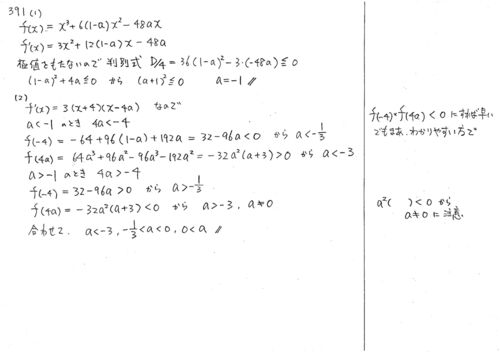 391 (1)
f(x) = x³+6(1-a)x²-48ax
f'(x) = 3x²+12(1-a)x-48a
極値をもたないので 判別式 D/4 = 36(1-a)²-3・(-48a) ≦ 0
(1-a)²+4a ≦ 0 から (a+1)² ≦ 0 a=-1 //
(2)
f'(x) = 3(x+4)(x-4a) なので
a<-1 のとき 4a<-4
f(-4) = -64+96(1-a)+192a = 32-96a<0 から a<-1/3
f(4a) = 64a³+96a²-96a³-192a² = -32a²(a+3)>0 から a<-3
a>-1 のとき 4a>-4
f(-4) = 32-96a>0 から a>-1/3
f(4a) = -32a²(a+3)<0 から a>-3, a≠0
合わせて, a<-3, -1/3<a<0, 0<a //
f(-4)×f(4a)<0 にすれば早い
でもまあ、わかりやすい方で
a²( )<0 から
a≠0 に注意.